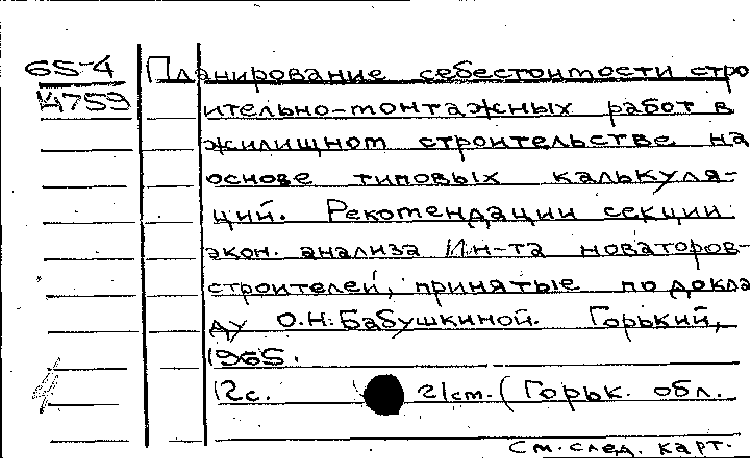 65-4 Планирование себестоимости стро
14759 ительно-монтажных работ в
жилищном строительстве на
основе типовых калькуля-
ций. Рекомендации секции
экон. анализа Ин-та новаторов-
строителей, принятые по докла
ду О.Н. Бабушкиной. Горький,
1965.
12с. 21см. (Горьк. обл.
См. след. карт.